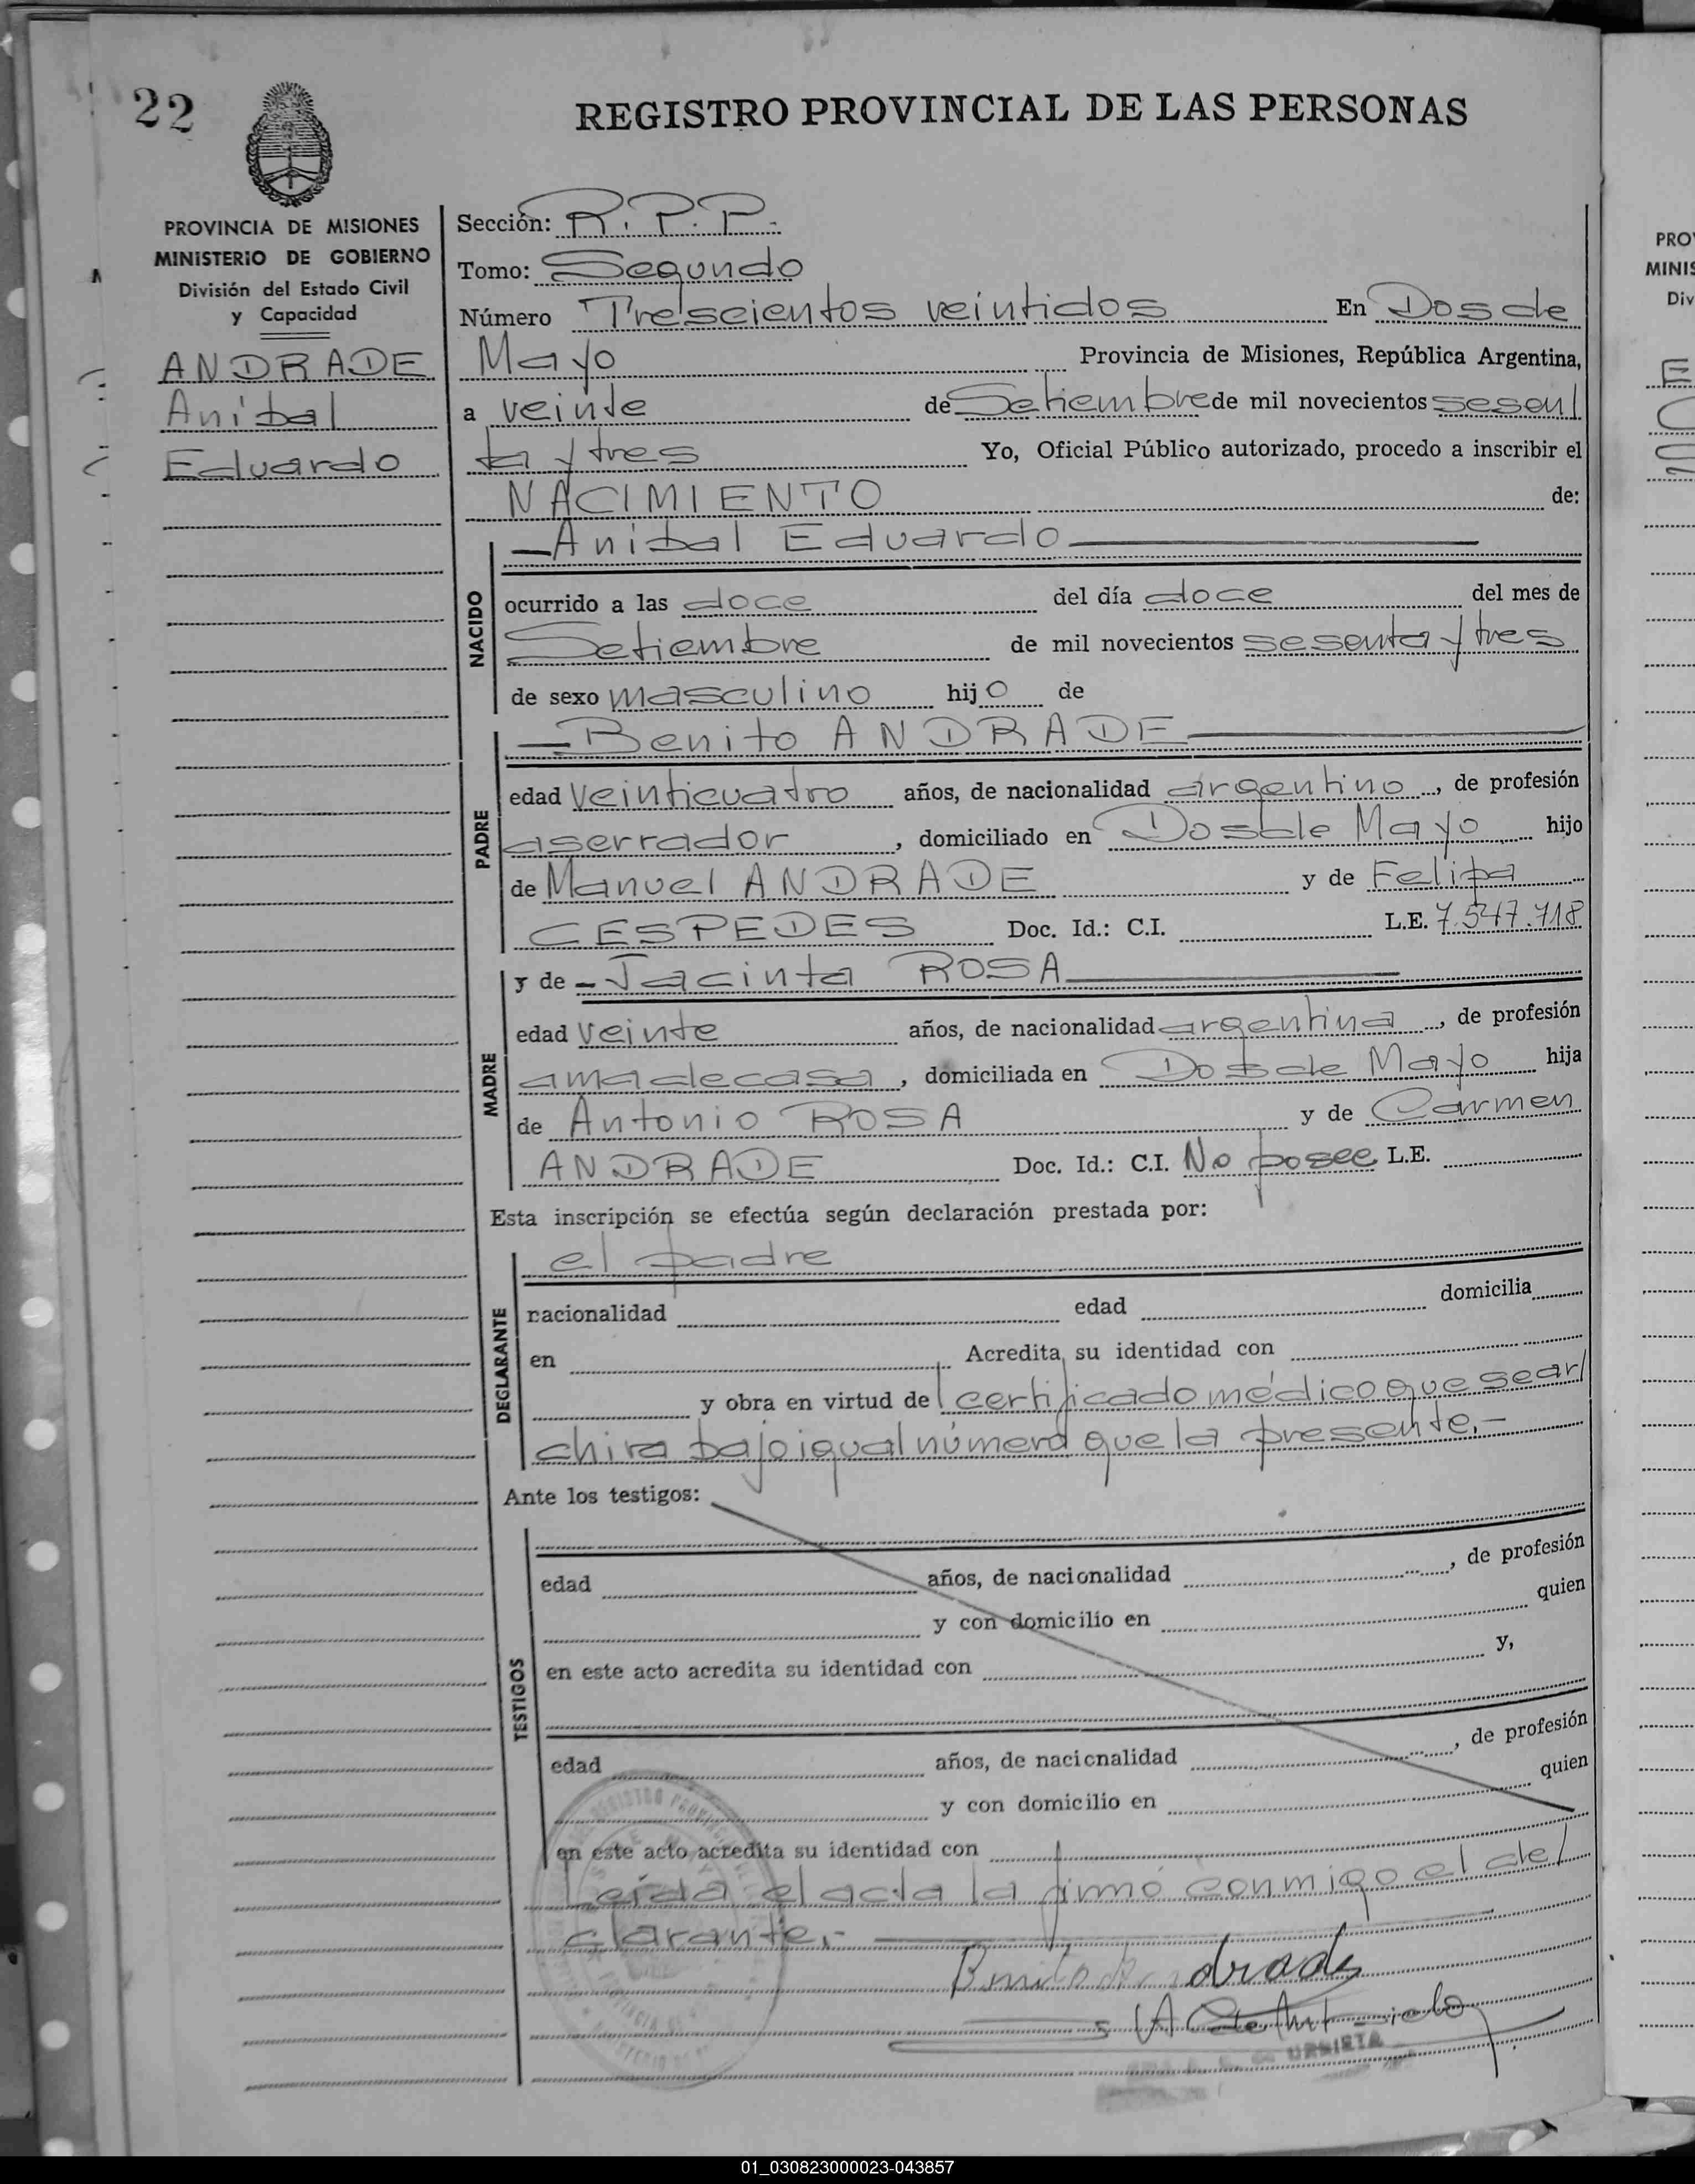 22
REGISTRO PROVINCIAL DE LAS PERSONAS
PROVINCIA DE MISIONES
MINISTERIO DE GOBIERNO
División del Estado Civil
y Capacidad
ANDRADE
Anibal
Eduardo
Sección: R. P. P.
Tomo: Segundo
Número Trescientos veintidos En Dos de
Mayo Provincia de Misiones, República Argentina,
a veinte de Setiembre de mil novecientos sesen/
ta y tres Yo, Oficial Público autorizado, procedo a inscribir el
NACIMIENTO de:
NACIDO
—Anibal Eduardo—
ocurrido a las doce del día doce del mes de
Setiembre de mil novecientos sesenta y tres
de sexo masculino hijo de
PADRE
—Benito ANDRADE—
edad veinticuatro años, de nacionalidad argentino, de profesión
aserrador, domiciliado en Dos de Mayo hijo
de Manuel ANDRADE y de Felipa
CESPEDES Doc. Id.: C.I. L.E. 7.547.718
MADRE
y de —Jacinta ROSA—
edad veinte años, de nacionalidad argentina, de profesión
ama de casa, domiciliada en Dos de Mayo hija
de Antonio ROSA y de Carmen
ANDRADE Doc. Id.: C.I. No posee L.E.
Esta inscripción se efectúa según declaración prestada por:
DECLARANTE
el padre
nacionalidad edad domicilia
en Acredita su identidad con
y obra en virtud del certificado médico que se ar/
chiva bajo igual número que la presente.-
Ante los testigos:
TESTIGOS
edad años, de nacionalidad , de profesión
y con domicilio en quien
en este acto acredita su identidad con y,
edad años, de nacionalidad , de profesión
y con domicilio en quien
en este acto acredita su identidad con
Leída el acta la firmó conmigo el de/
clarante.-
Benito Andrade
URBIETA
PRO
MINIS
Div
01_030823000023-043857